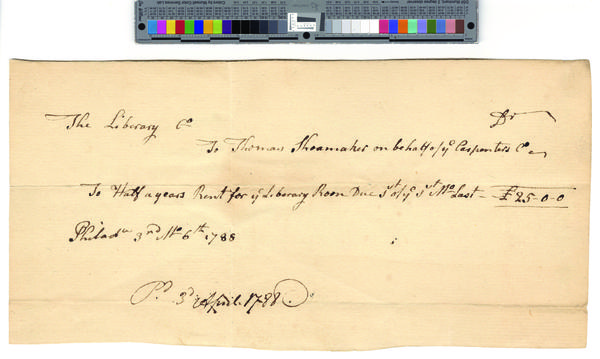 The Liberary Co Dr
To Thomas Shoemaker on behalf of ye Carpenters Co
To Half a years Rent for ye Liberary Room Due 1st of ye 1st Mo Last — £25-0-0
Philada 3rd Mo 6th 1788
Pd 3d April. 1788